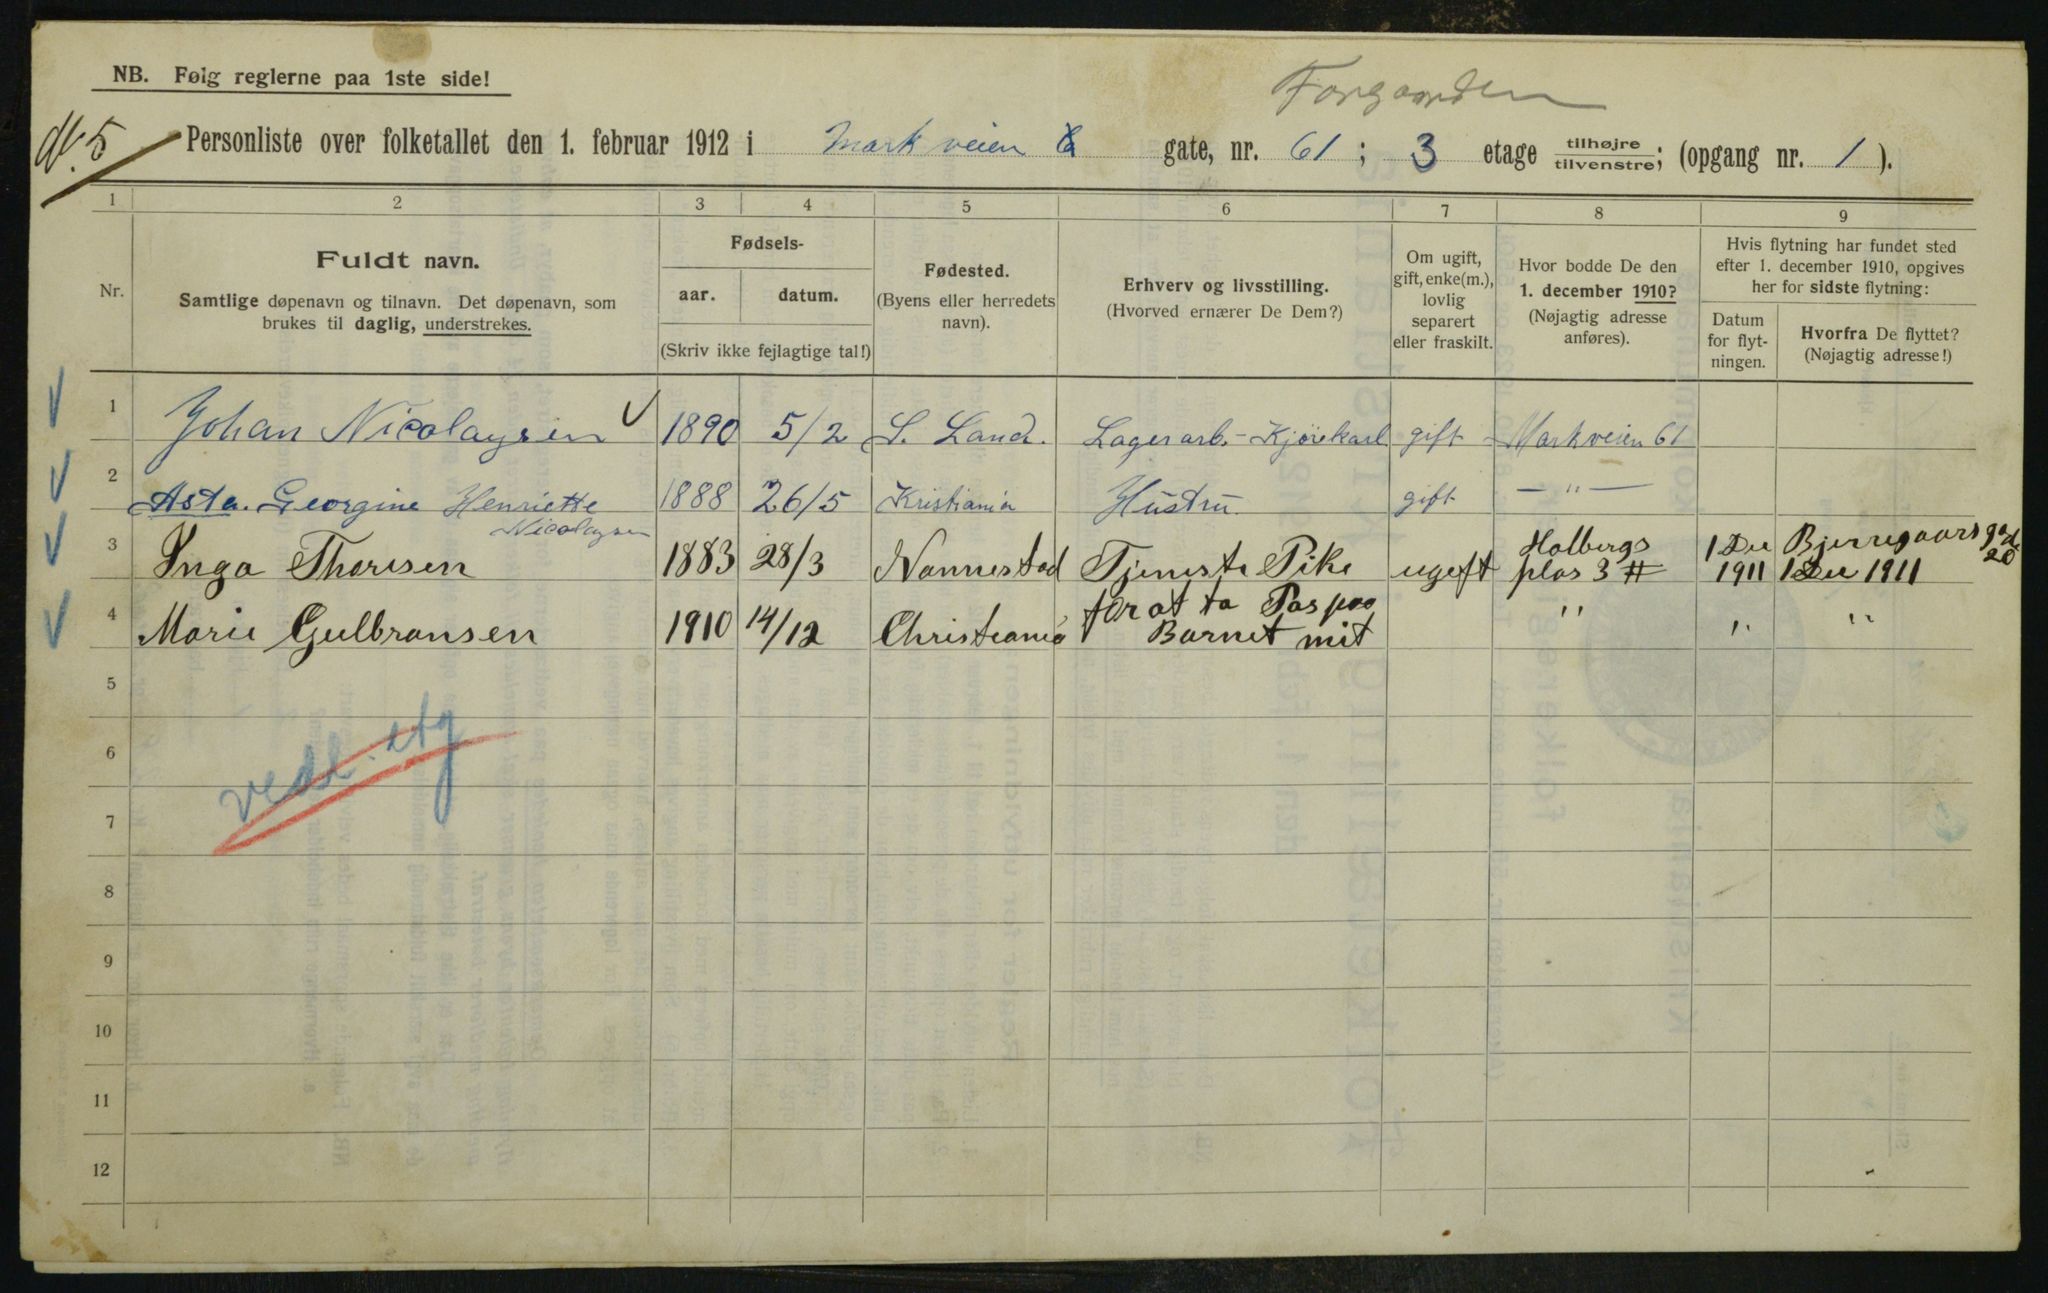 NB. Følg reglerne paa 1ste side!
Forgaarden
Personliste over folketallet den 1. februar 1912 i Markveien gate, nr. 61; 3 etage tilhøjre tilvenstre; (opgang nr. 1).
1 2 3 4 5 6 7 8 9
Nr.
Fuldt navn.
Samtlige døpenavn og tilnavn. Det døpenavn, som
brukes til daglig, understrekes.
Fødsels-
aar. datum.
(Skriv ikke fejlagtige tal!)
Fødested.
(Byens eller herredets
navn).
Erhverv og livsstilling.
(Hvorved ernærer De Dem?)
Om ugift,
gift, enke(m.),
lovlig
separert
eller fraskilt.
Hvor bodde De den
1. december 1910?
(Nøjagtig adresse
anføres).
Hvis flytning har fundet sted
efter 1. december 1910, opgives
her for sidste flytning:
Datum
for flyt-
ningen.
Hvorfra De flyttet?
(Nøjagtig adresse!)
1 Johan Nicolaysen 1890 5/2 S. Land. Lagerarb.- Kjørekarl gift Markveien 61
2 Asta. Georgine Henriette 1888 26/5 Kristiania Hustru. gift — " —
Nicolaysen
3 Inga Thoresen 1883 28/3 Nannestad Tjeneste Pike ugeft Holbergs plas 3 1 De 1911 Bjerregaarsgad 20 1 De 1911
for at ta Pas paa
4 Marie Gulbransen 1910 14/12 Christiania Barnet mit " " "
5
vedl. etg
6
7
8
9
10
11
12